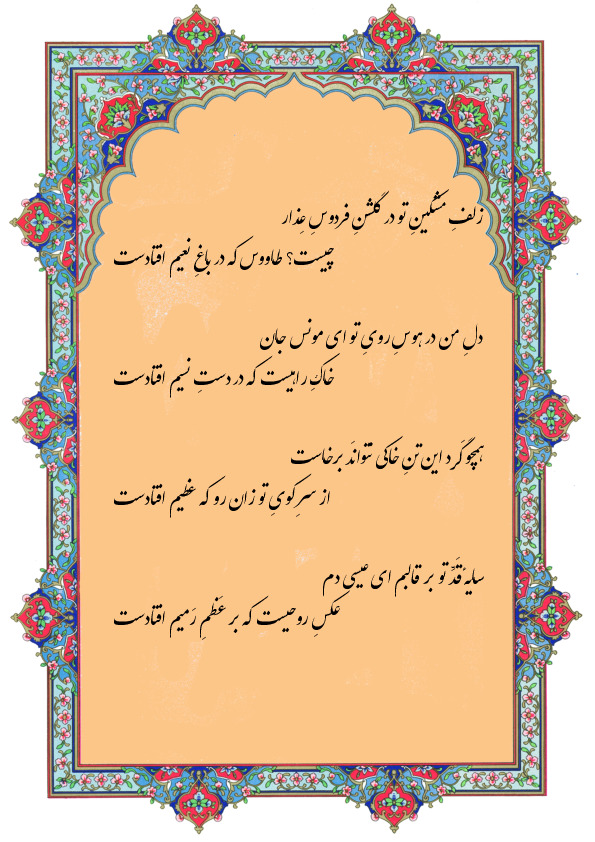 زلفِ مشکینِ تو در گلشنِ فردوسِ عِذار
چیست؟ طاووس که در باغِ نعیم افتادست
دلِ من در هوسِ رویِ تو ای مونس جان
خاکِ راهیست که در دستِ نسیم افتادست
همچو گَرد این تنِ خاکی نتواند برخاست
از سرِ کویِ تو زان رو که عظیم افتادست
سایهٔ قَدِّ تو بر قالبم ای عیسی دم
عکسِ روحیست که بر عَظمِ رَمیم افتادست